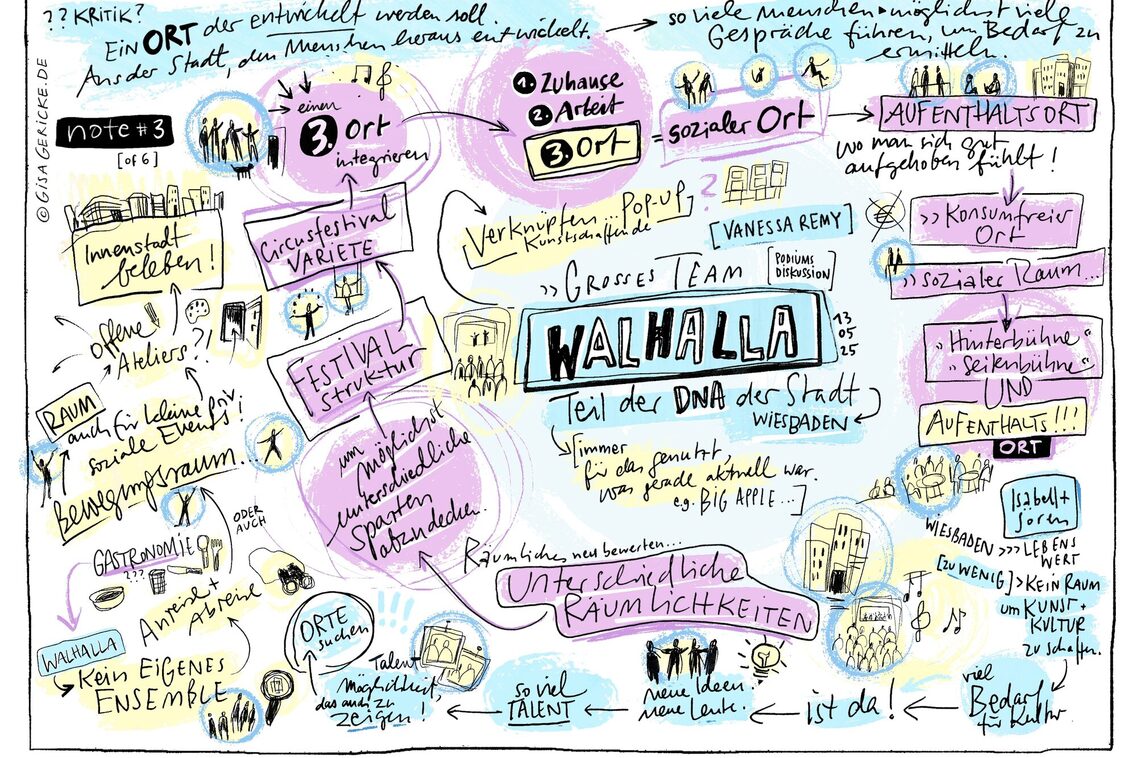 ?? KRITIK?
EIN ORT der entwickelt werden soll.
Aus der Stadt, den Menschen heraus entwickelt.
so viele Menschen + möglichst viele
Gespräche führen, um Bedarf zu
ermitteln.
© GISA GERICKE.DE
note #3
[of 6]
einen
3. Ort
integrieren
1. Zuhause
2. Arbeit
3. Ort
= sozialer Ort
AUFENTHALTSORT
wo man sich gut
aufgehoben fühlt!
>> Konsumfreier
Ort
>> sozialer Raum...
"Hinterbühne"
"Seitenbühne"
UND
AUFENTHALTS!!!
ORT
Verknüpfen... POP-UP
Kunstschaffende
?
[VANESSA REMY]
>> GROSSES TEAM
[PODIUMS
DISKUSSION]
WALHALLA
13
05
25
Teil der DNA der Stadt
WIESBADEN
[immer
für das genutzt,
was gerade aktuell war.
e.g. BIG APPLE...]
Innenstadt
beleben!
Circusfestival
VARIETE
FESTIVAL
Struktur
um
möglichst
unterschiedliche
Sparten
abzudecken...
offene
Ateliers?
RAUM
auch für kleine
soziale Events!
Bewegungsraum...
ODER
AUCH
GASTRONOMIE
???
Anreise +
Abreise
WALHALLA
Kein EIGENES
ENSEMBLE
ORTE
suchen
Räumliches neu bewerten...
UNTERSCHIEDLICHE
RÄUMLICHKEITEN
Isabell +
Soren
WIESBADEN >>> LEBENS
WERT
[ZU WENIG] > KEIN RAUM
um KUNST +
KULTUR
zu schaffen.
viel
Bedarf
für Kultur
ist da!
neue Ideen.
neue Leute.
so viel
TALENT
Talent
Möglichkeit,
das auch zu
zeigen!